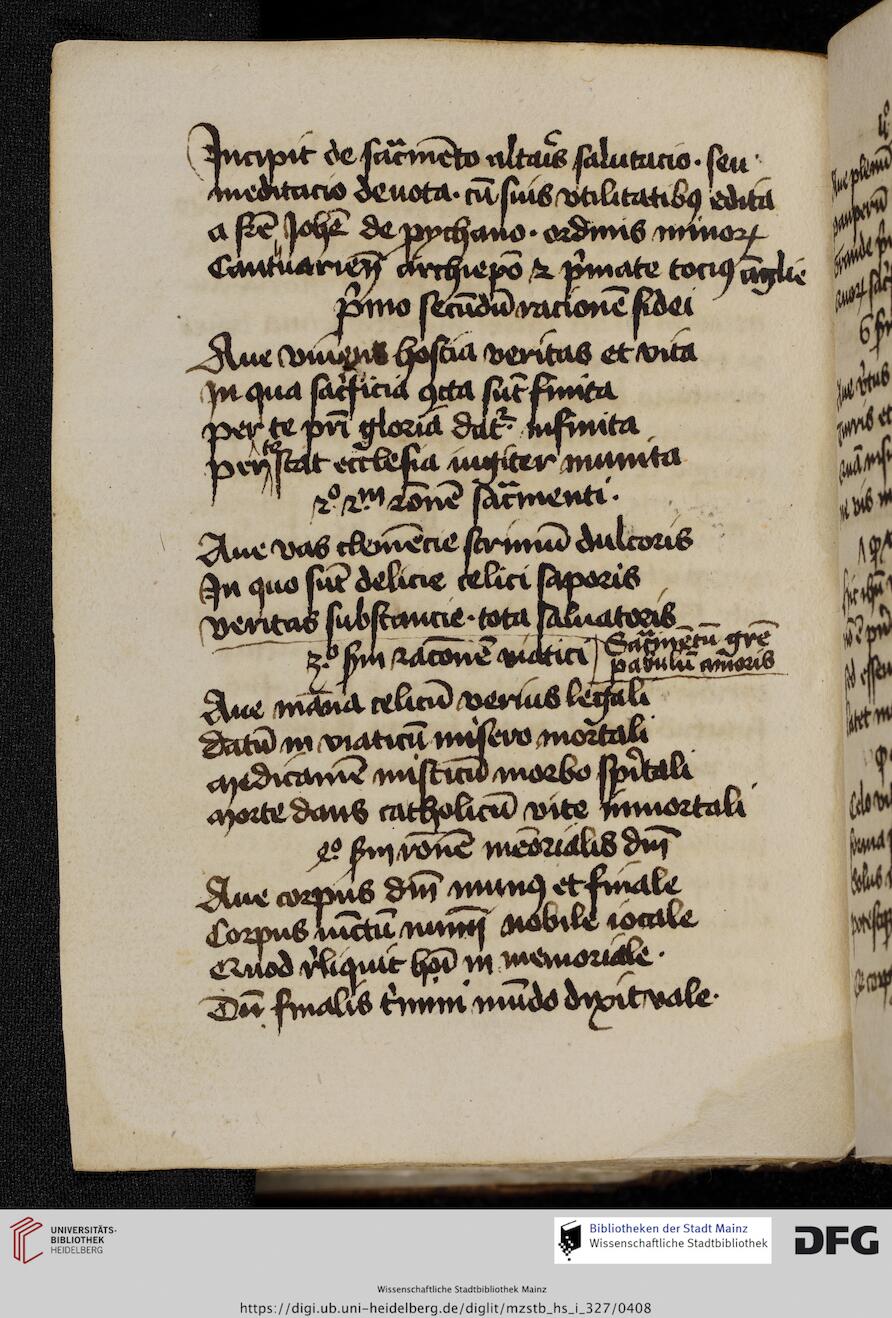 Incipit de sac̄mēto altar̄s salutacio · seu
meditacio deuota · cū suis vtilitatibꝰ edita
a fr̄e Joh̄e de pychano · ordinis minorꝝ
Cantuarien̄ archiep̄o ⁊ p̄mate tociꝰ āglie
p̄mo secūdū racionē fidei
Aue viuens hostia veritas et vita
In qua sac̄ficia cūcta sūt finita
per te pr̄i gloria dat᷑ infinita
per te stat ecc̄lesia iugiter munita
2º 2m r̄onē sac̄menti ·
Aue vas clemēcie scriniū dulcoris
In quo sūt delicie celici saporis
veritas substancie · tota saluatoris
Sac̄mētū gr̄e
pabulū amoris
3º scd̄m racōnē viatici
Aue māna celicū verius legali
datū in viaticū misero mortali
Medicamē misticū morbo sp̄itali
Morte dans catholicū vite inmortali
4º scd̄m r̄onē memōrialis dn̄i
Aue corpus dn̄i munꝰ et finale
Corpus iūctū numī nobile iocale
Quod r̄liquit ho͞i in memoriale ·
Dū finalis t̄mini mūdo dixit vale ·
UNIVERSITÄTS-
BIBLIOTHEK
HEIDELBERG
Bibliotheken der Stadt Mainz
Wissenschaftliche Stadtbibliothek
DFG
Wissenschaftliche Stadtbibliothek Mainz
https://digi.ub.uni-heidelberg.de/diglit/mzstb_hs_i_327/0408